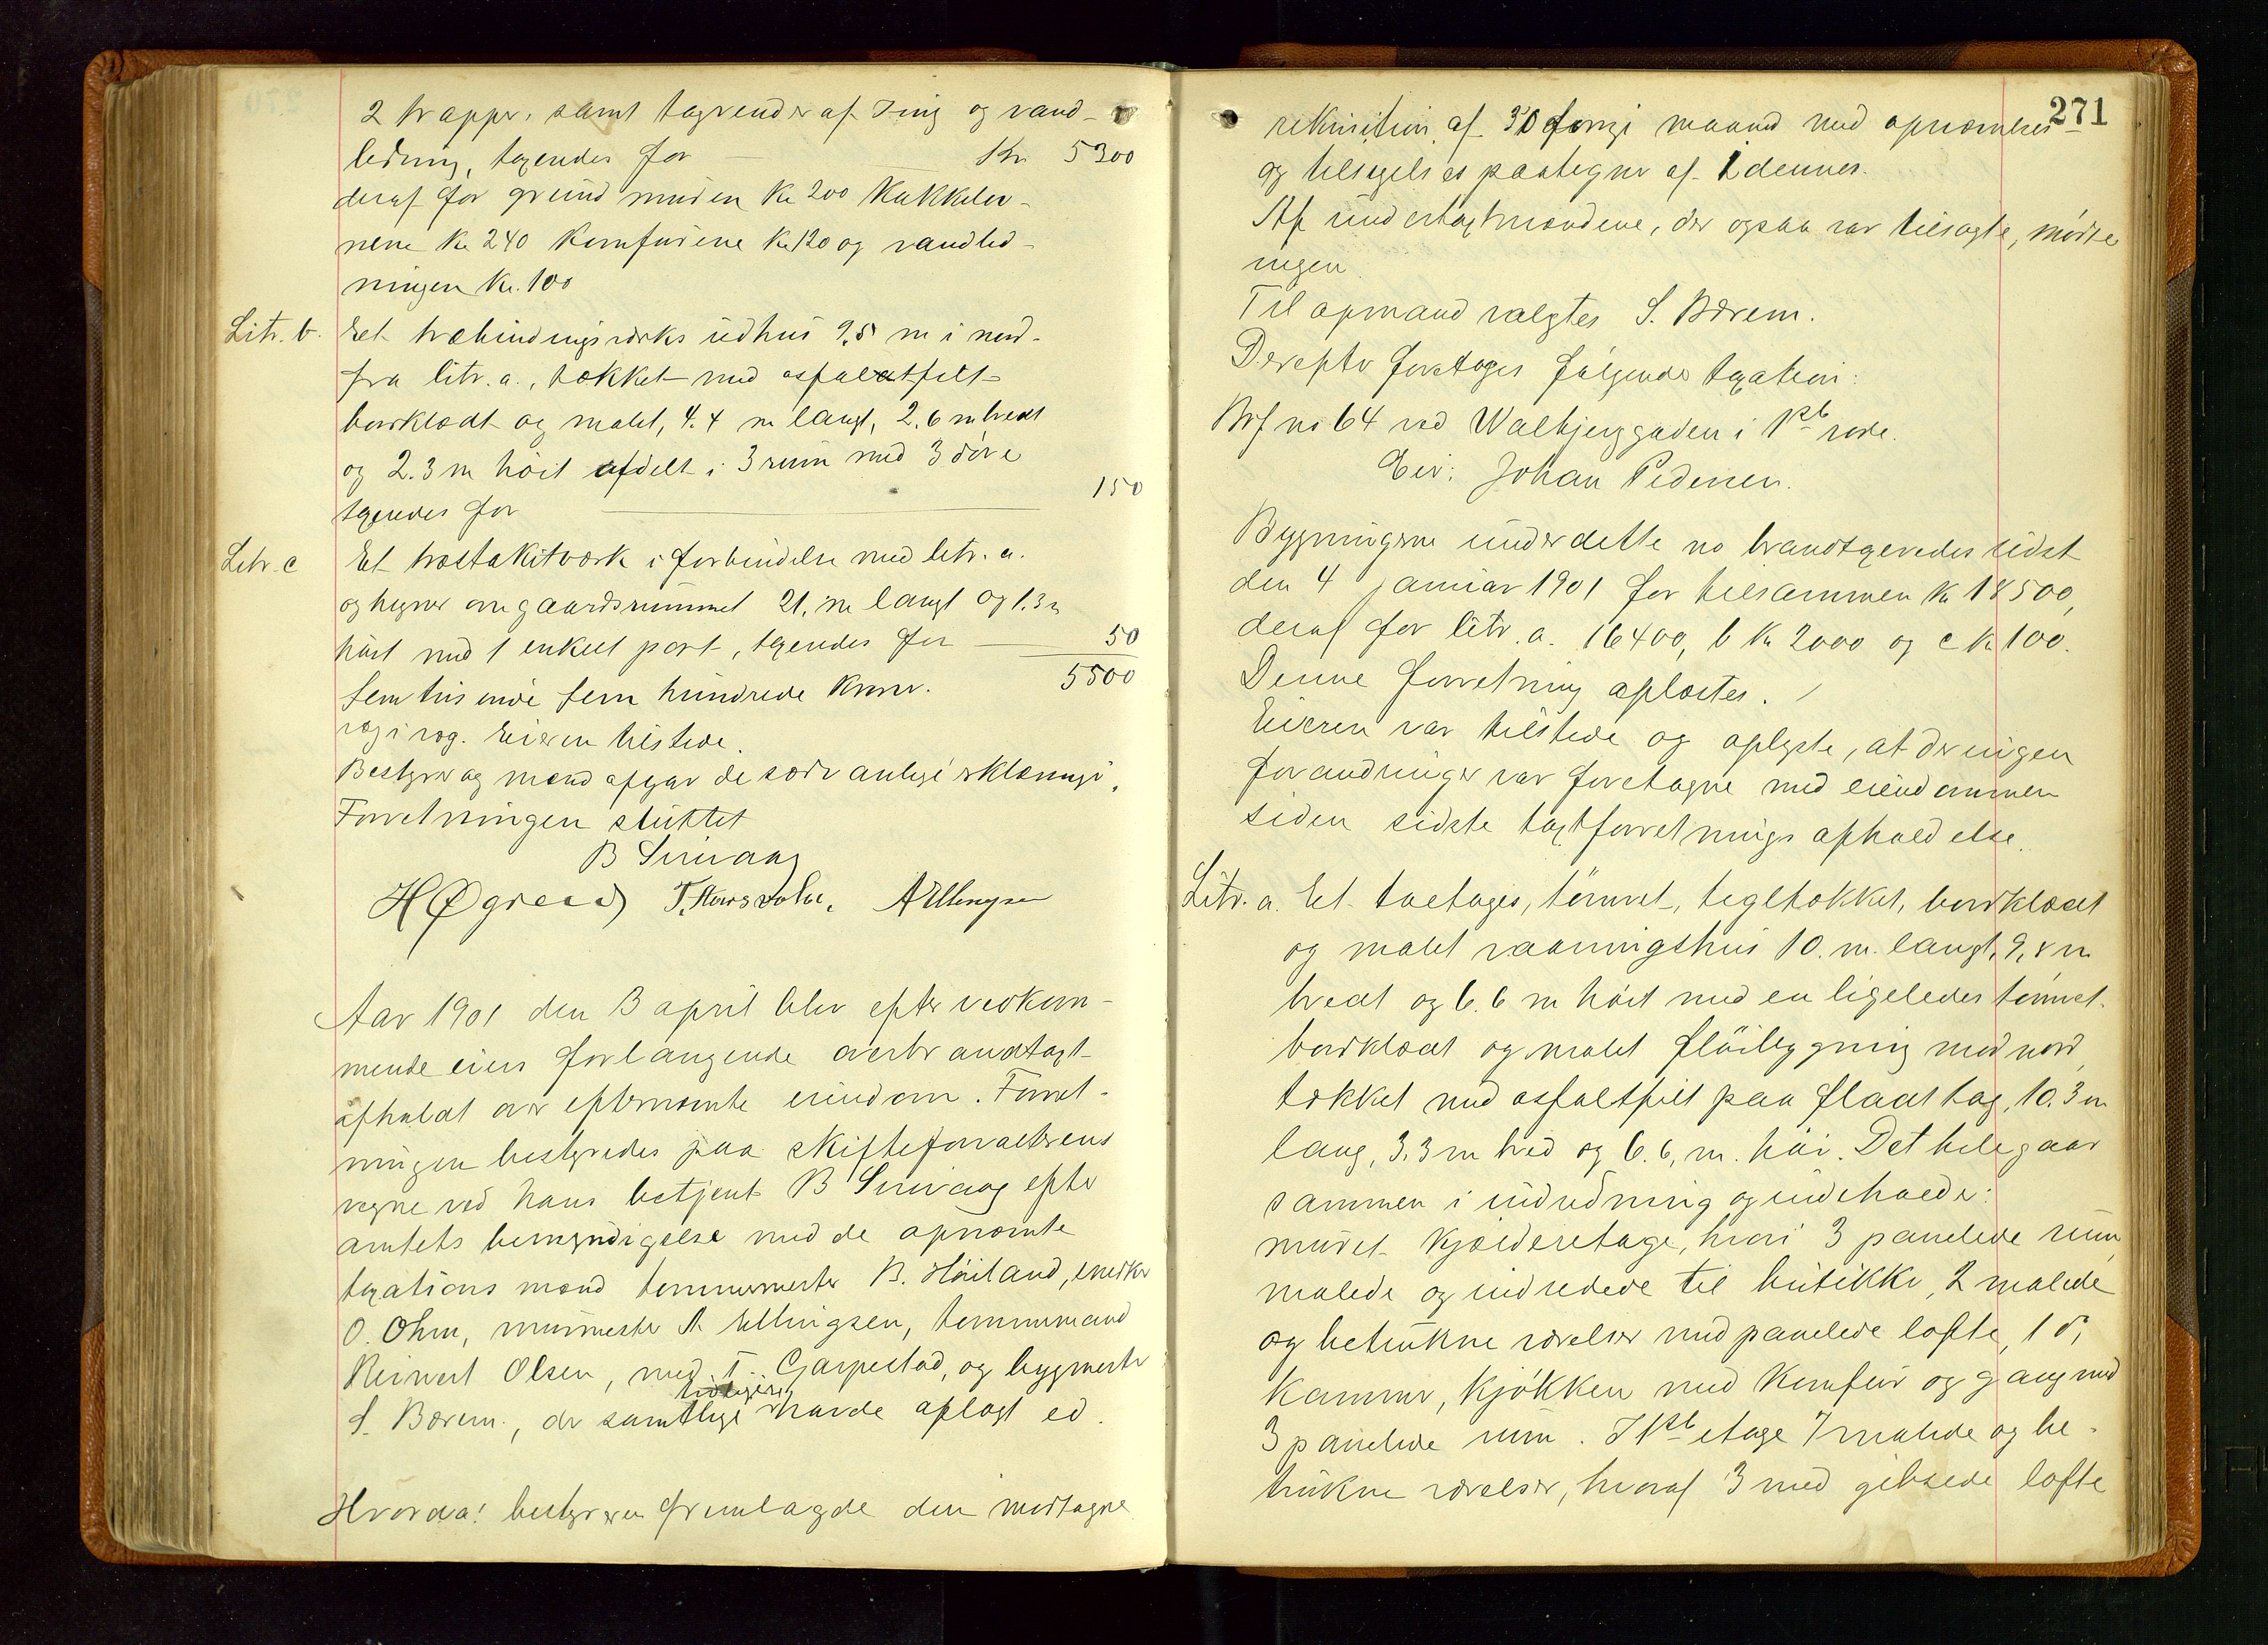 2 trapper, samt tagrender af zing og vand-
ledning, taxeredes for Kr 5300
deraf for grundmuren Kr 200 kakkelov-
nene Kr 240 komfurene Kr 120 og vandled-
ningen Kr. 100
Litr. b. Et træbindingsværks udhus 9.5 m i nord-
fra litr. a., tækket med asfaltfilt
bordklædt og malet, 4.4 m langt, 2.6 m bredt
og 2.3 m höit afdelt i 3 rum med 3 döre
taxeredes for 150
Litr. c Et træstakitværk i forbindelse med litr. a.
og hegner om gaardsrummet 21. m langt og 1.3 m
höit med 1 enkelt port, taxeredes for 50
5500
fem tusinde fem hundrede kroner.
Eieren tilstede.
Bestyrer og mænd afgav de sædvanlige erklæringer.
Forretningen sluttet
B Survaag
H Øgreid T. Korsvold. A Ellingsen
Aar 1901 den 3 april blev efter vedkom-
mende eiers forlangende overbrandtaxt
afholdt over efternævnte eiendom. Forret-
ningen bestyredes paa skifteforvalterens
vegne ved hans betjent B Survaag efter
amtets bemyndigelse med de opnævnte
taxationsmænd tømmermester B. Höiland, snedker
O. Ohm, murmester A Ellingsen, tømmermand
Reinert Olsen, T. Garpestad, og bygmester
S. Bærem., der samtlige tidligere havde aflagt ed.
Hvorda! bestyreren fremlagde den modtagne
271
rekvisition af 30 forrige maaned med opnævnelses-
og tilsigelsespaategner af 1 dennes.
Af undertaxtmændene, der ogsaa var tilsagte, mödte
ingen.
Til opmand valgtes S. Bærem.
Derefter foretoges fölgende taxation:
Brf no 64 ved Walbjerggaden i 1ste rode.
Eier: Johan Pedersen.
Bygningerne under dette no brandtaxeredes sidst
den 4 januar 1901 for tilsammen Kr 18500,
deraf for litr. a. 16400, b Kr 2000 og c Kr 100.
Denne forretning oplæstes.
Eieren var tilstede og oplyste, at der ingen
forandringer var foretagne med eiendommen
siden sidste taxtforretnings afholdelse.
Litr. a. Et toetages, tömret, tegltækket, bordklædt
og malet vaaningshus 10. m. langt, 9,8 m
bredt og 6.6 m höit med en ligeledes tömret
bordklædt og malet flöibygning mod nord,
tækket med asfaltfilt paa fladt tag, 10.3 m
lang, 3.3 m bred og 6.6, m. höi. Det hele gaar
sammen i indredning og indeholder:
muret kjælderetage, hvori 3 panelede rum,
malede og indredede til butikke, 2 malede
og betrukne værelser med panelede lofte, 1 do,
kammer, kjökken med komfur og gang med
3 panelede rum. I 1ste etage 7 malede og be-
trukne værelser, hvoraf 3 med gibsede lofte